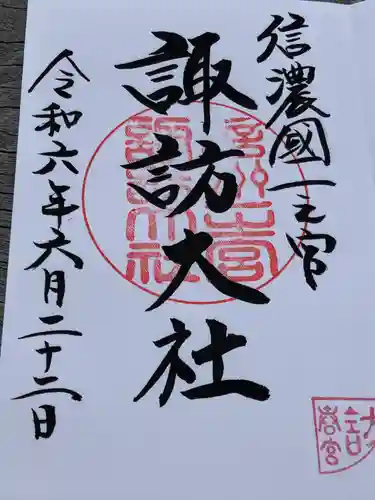 信濃國一之宮
諏訪大社
令和六年六月二十二日